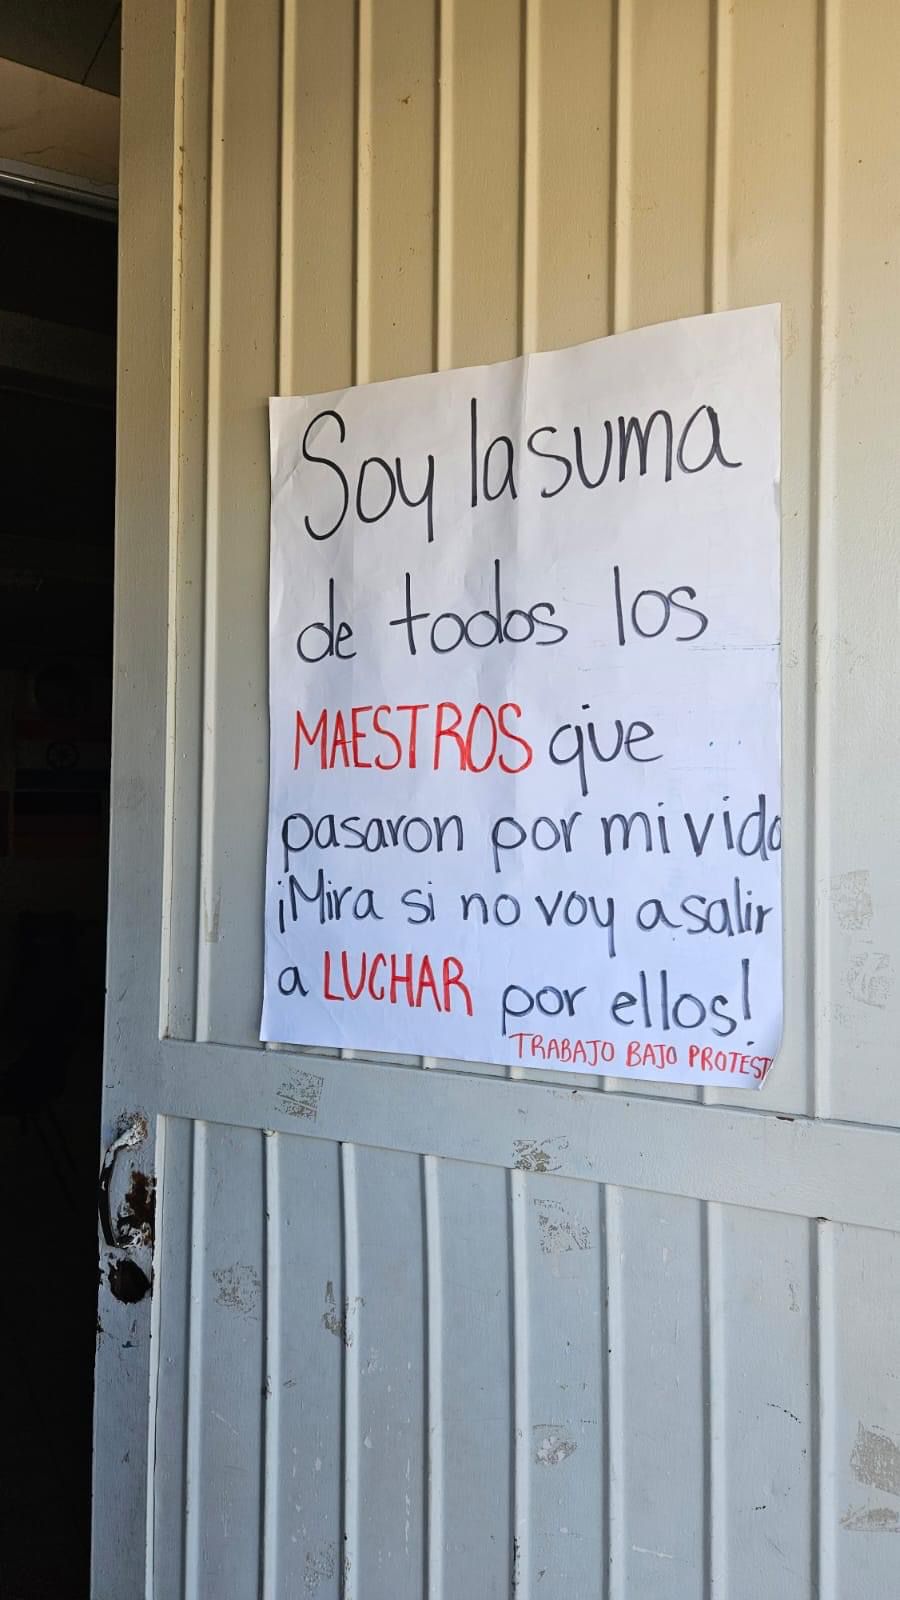 Soy la suma
de todos los
MAESTROS que
pasaron por mi vida
¡Mira si no voy a salir
a LUCHAR por ellos!
TRABAJO BAJO PROTEST